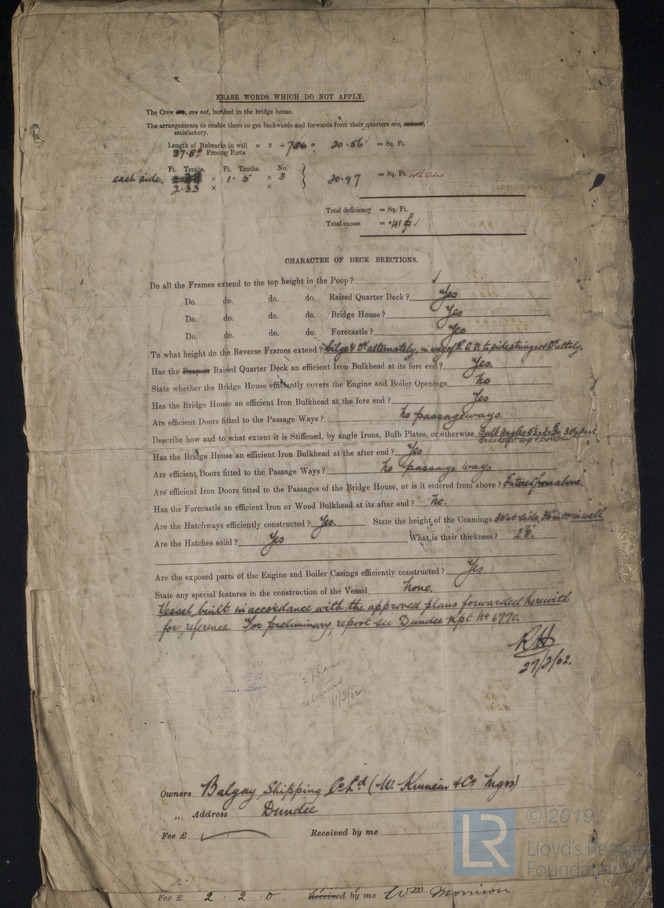 ERASE WORDS WHICH DO NOT APPLY.
The Crew are, are not, berthed in the bridge house.
The arrangements to enable them to get backwards and forwards from their quarters are,
satisfactory.
Length of Bulwarks in well × 2 ÷ = 20.56 = Sq. Ft.
Freeing Ports
Ft. Tenths. Ft. Tenths. No.
each side, × 1.5 × 3 20.97 = Sq. Ft.
2.33 × ×
Total deficiency = Sq. Ft.
Total excess = .41
CHARACTER OF DECK ERECTIONS.
Do all the Frames extend to the top height in the Poop?
Do. do. do. do. Raised Quarter Deck? Yes
Do. do. do. do. Bridge House? Yes
Do. do. do. do. Forecastle? Yes
To what height do the Reverse Frames extend? alternately, in way of R.Q.D. to side stringer
Has the Poop or Raised Quarter Deck an efficient Iron Bulkhead at its fore end? Yes.
State whether the Bridge House efficiently covers the Engine and Boiler Openings no
Has the Bridge House an efficient Iron Bulkhead at the fore end? Yes
Are efficient Doors fitted to the Passage Ways? no passageways.
Describe how and to what extent it is Stiffened, by angle Irons, Bulb Plates, or otherwise Bulb angles
Has the Bridge House an efficient Iron Bulkhead at the after end? Yes
Are efficient Doors fitted to the Passage Ways? no passage ways
Are efficient Iron Doors fitted to the Passages of the Bridge House, or is it entered from above? Entered from above.
Has the Forecastle an efficient Iron or Wood Bulkhead at its after end? no.
Are the Hatchways efficiently constructed? Yes. State the height of the Coamings in well
Are the Hatches solid? Yes What is their thickness?
Are the exposed parts of the Engine and Boiler Casings efficiently constructed? Yes
State any special features in the construction of the Vessel none.
Vessel built in accordance with the approved plans forwarded herewith
for reference. For preliminary report see Dundee Rpt No 6770.
RH
27/3/02.
2 plans
returned
Owners Balgay Shipping Co Ld (W. Kinnear & Co Mgrs)
„ Address Dundee
Fee £ : : Received by me
Fee £ 2 : 2 : 0 Received by me Wm Morrison
LR © 2019
Lloyd's Register
Foundation